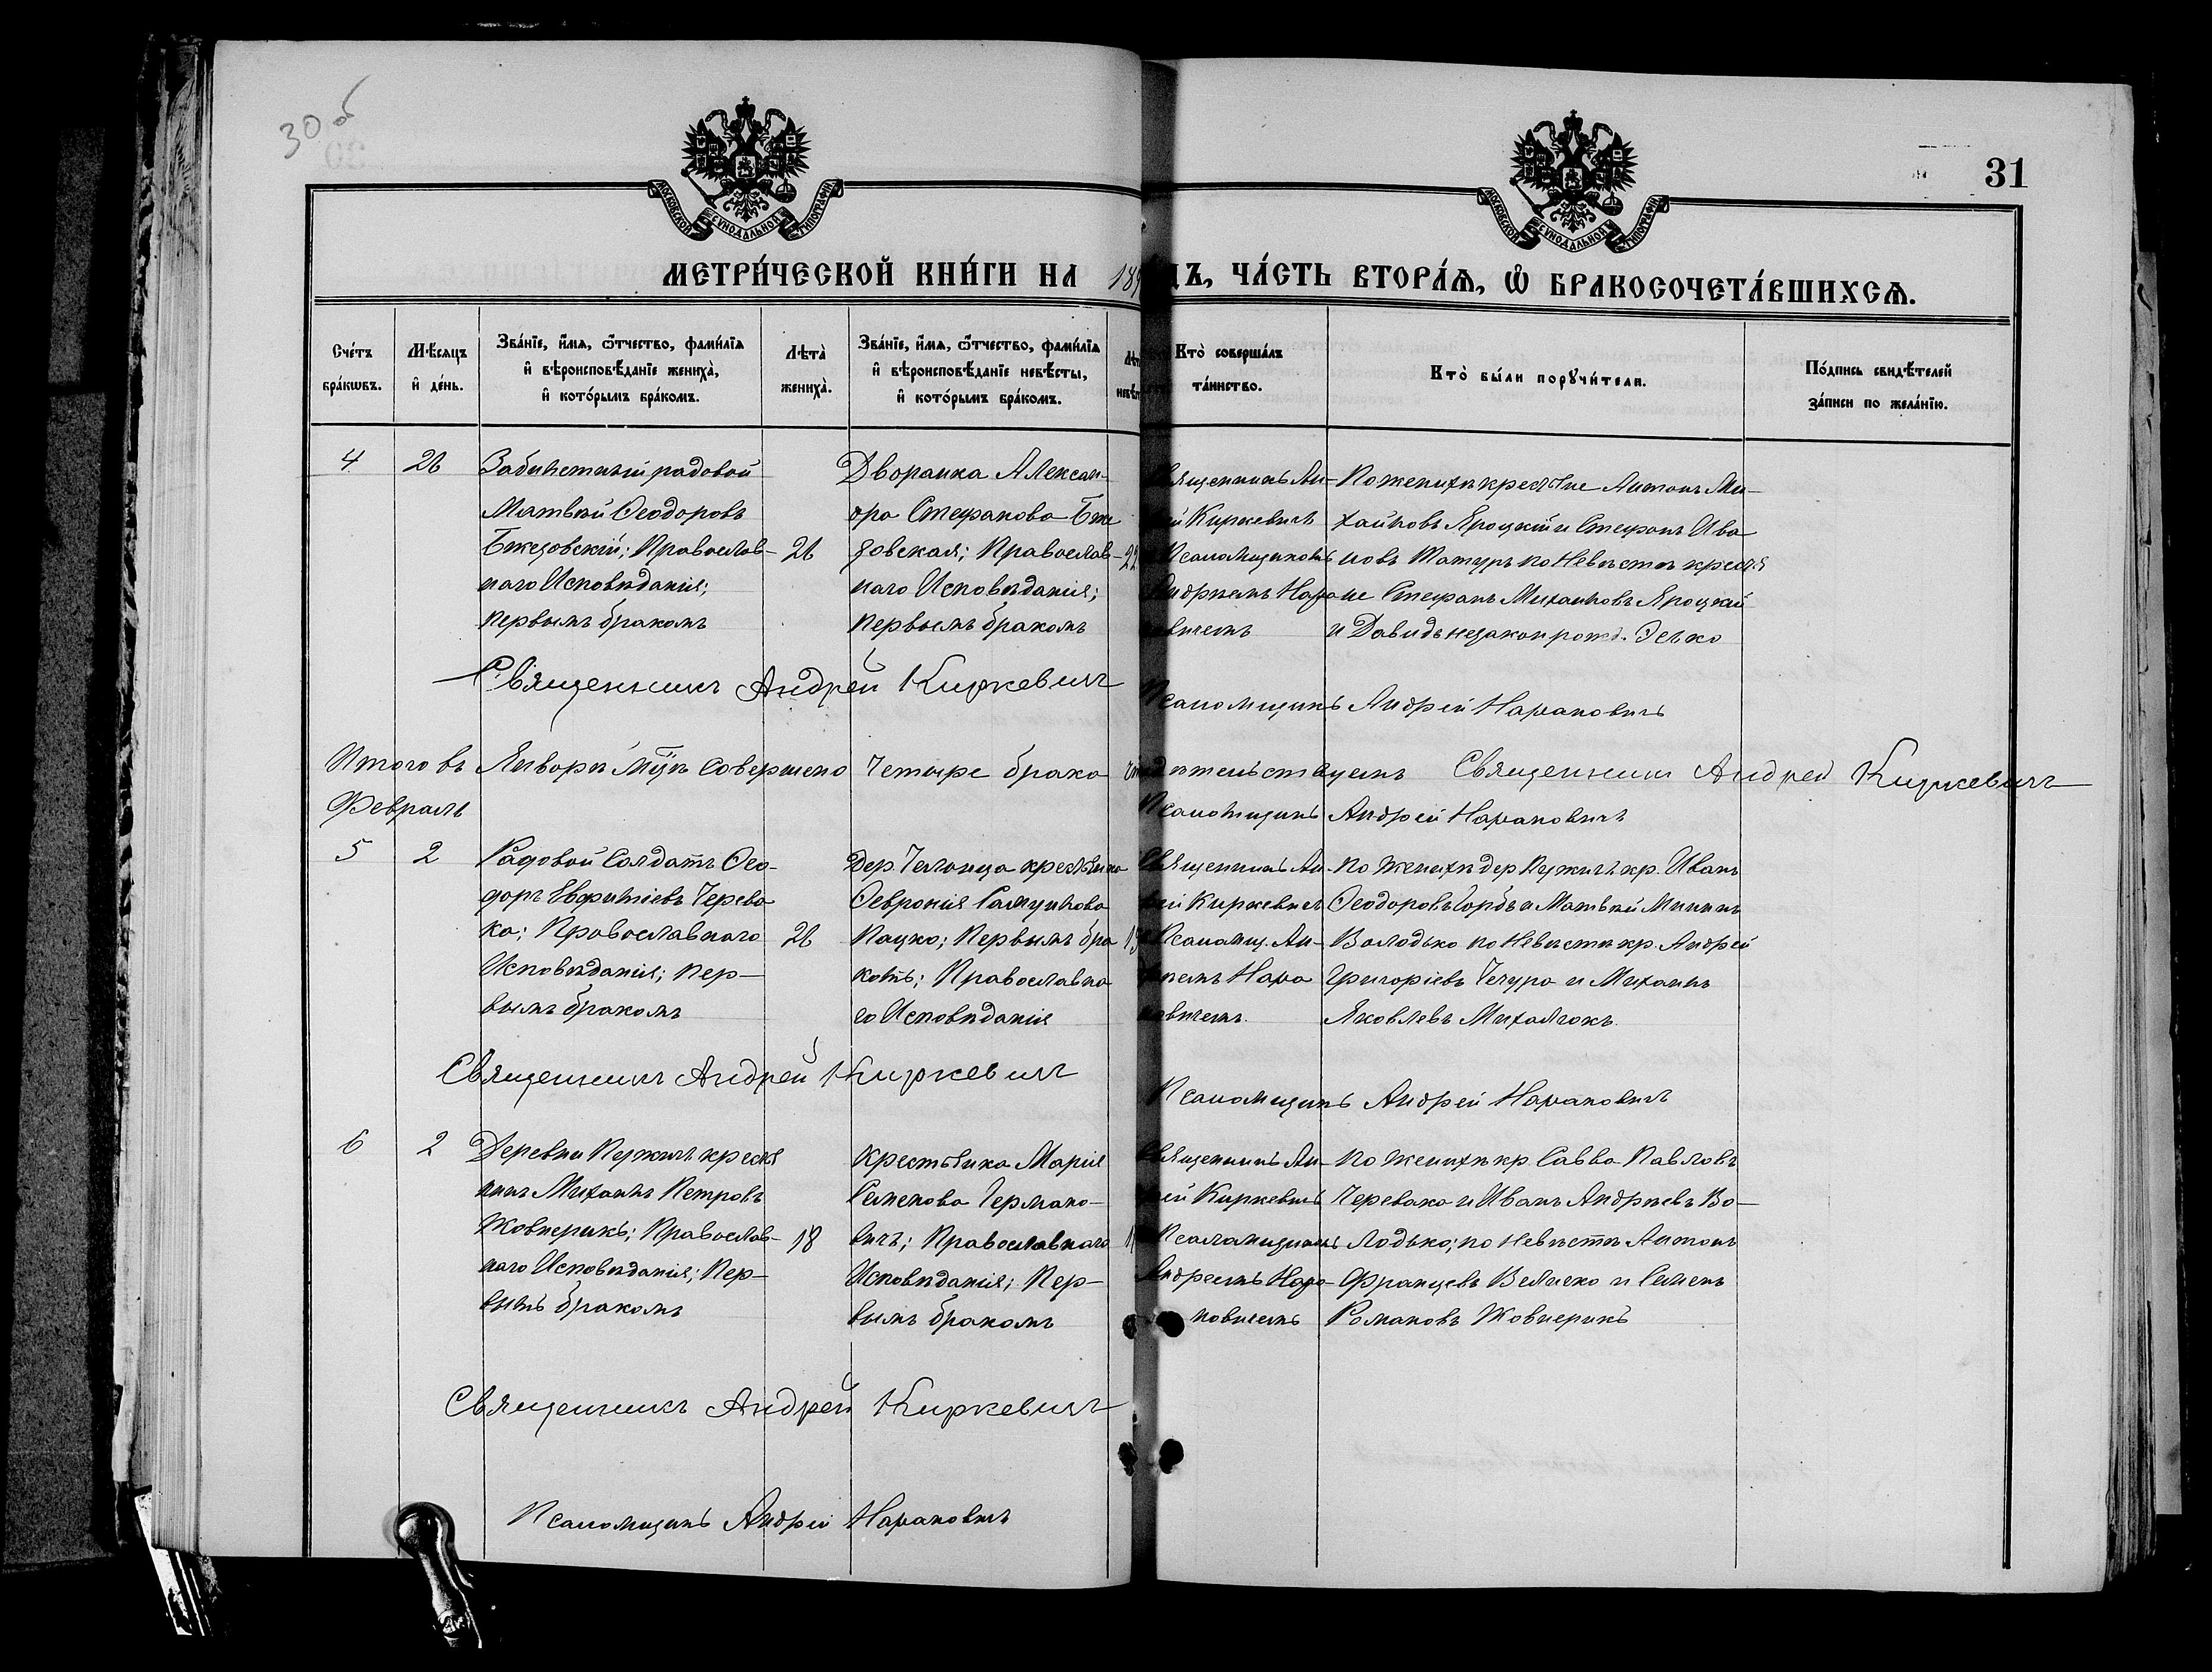 30 об
31
МОСКОВСКОЙ СѴНОДАЛЬНОЙ ТИПОГРАФІИ
МОСКОВСКОЙ СѴНОДАЛЬНОЙ ТИПОГРАФІИ
МЕТРИ́ЧЕСКОЙ КНИ́ГИ НА 189 ДЪ, ЧА́СТЬ ВТОРА́Ѧ, Ѽ БРАКОСОЧЕТА́ВШИХСѦ.
Сче́тъ
бра́кѡвъ.
Мѣ́сѧцъ
и҆ де́нь.
Зва́нїе, и҆́мѧ, ѻ҆́тчество, фами́лїѧ
и҆ вѣроисповѣ́данїе жениха̀,
и҆ кото́рымъ бра́комъ.
Лѣта̀
жениха̀.
Зва́нїе, и҆́мѧ, ѻ҆́тчество, фами́лїѧ
и҆ вѣроисповѣ́данїе невѣ́сты,
и҆ кото́рымъ бра́комъ.
Кто̀ соверша́лъ
та́инство.
Кто̀ бы́ли порꙋчи́тели.
По́дпись свидѣ́телей
за́писи по жела́нїю.
4
26
рядовой
Матвѣй Ѳеодоровъ
Бжезовскій; Православ-
наго Исповѣданія;
первымъ бракомъ
26
Дворянка Алексан-
дра Стефанова Бже
зовская; Православ-
наго Исповѣданія;
первымъ бракомъ
22
Священникъ Ан-
рей Киркевичъ
Псаломщикомъ
Андреемъ Нара
новичемъ
По женихѣ Антонъ Ми-
хайловъ Яроцкій и Стефанъ Ива
новъ по Невѣстѣ
не Стефанъ Михаиловъ Яроцкій
и Давидъ незакон рожд.
Священникъ Андрей Киркевичъ
Псаломщикъ Андрей Нарановичъ
Итого въ Январѣ мцѣ совершено четыре брака свидѣтельствуемъ Священникъ Андрей Киркевичъ
Февраль
Псаломщикъ Андрей Нарановичъ
5
2
Рядовой Солдатъ Ѳео-
доръ Черева
ко; Православнаго
Исповѣданія; пер-
вымъ бракомъ
26
Дер.
Ѳевронія Самуилова
Пацко; Первымъ бра
комъ; Православна
го Исповѣданія
19
Священникъ Ан-
рей Киркевичъ
Псаломщ. Ан-
реемъ Нара
новичемъ.
по Женихѣ дер кр. Иванъ
Ѳеодоровъ и Матвѣй
Володько по Невѣстѣ кр. Андрей
Григоріевъ и Михаилъ
Яковлевъ Михалюкъ.
Священникъ Андрей Киркевичъ
Псаломщикъ Андрей Нарановичъ
6
2
Деревни
нинъ Михаилъ Петровъ
Жовнерикъ; Православ-
наго Исповѣданія; Пер-
вымъ бракомъ
18
Марія
Семенова Германо-
вичъ; Православнаго
Исповѣданія; Пер-
вымъ бракомъ
Священникъ Ан-
рей Киркевичъ
Псаломщикомъ
Андреемъ Нара-
новичемъ
по женихѣ кр. Савва Павловъ
Черевако и Иванъ Андреевъ Во-
лодько; по Невѣстѣ Антонъ
Францевъ и Семенъ
Романовъ Жовнерикъ
Священникъ Андрей Киркевичъ
Псаломщикъ Андрей Нарановичъ